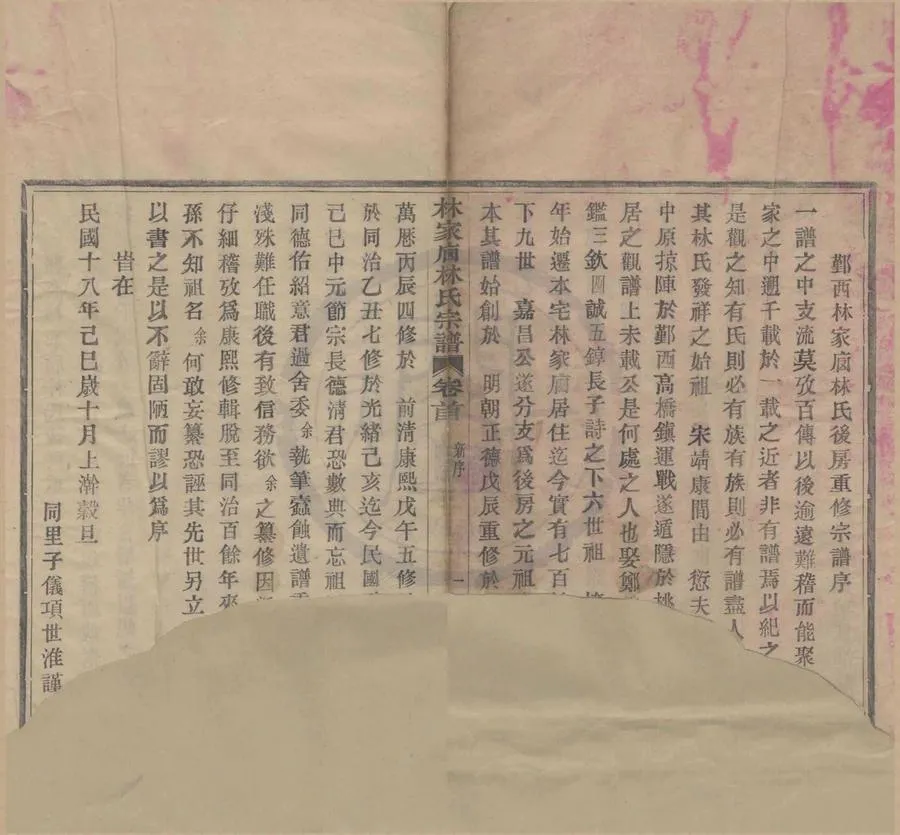 鄞西林家廟林氏後房重修宗譜序
一譜之中支流莫攷百傳以後逾遠難稽而能聚
家之中遡千載於一載之近者非有譜焉以紀之
是觀之知有氏則必有族有族則必有譜盡人
其林氏發祥之始祖　宋靖康間由　愆夫
中原掠陣於鄞西高橋鎮運戰遂遁隱於桃
居之觀譜上未載公是何處之人也娶鄭
鑑三欽四誠五錞長子詩之下六世祖
年始遷本宅林家廟居住迄今實有七百
下九世　嘉昌公遂分支爲後房之元祖
本其譜始創於　明朝正德戊辰重修於
林家廟林氏宗譜　卷首　新序　一
萬厯丙辰四修於　前清康熙戊午五修
於同治乙丑七修於光緒己亥迄今民國
己巳中元節宗長德清君恐數典而忘祖
同德佑紹意君過舍委余執筆蠧蝕遺譜
淺殊難任職後有致信務欲余之纂修因
仔細稽攷爲康熙修輯脫至同治百餘年來
孫不知祖名余何敢妄纂恐誣其先世另立
以書之是以不辭固陋而謬以爲序
旹在
民國十八年己巳歲十月上澣穀旦
同里子儀項世淮謹